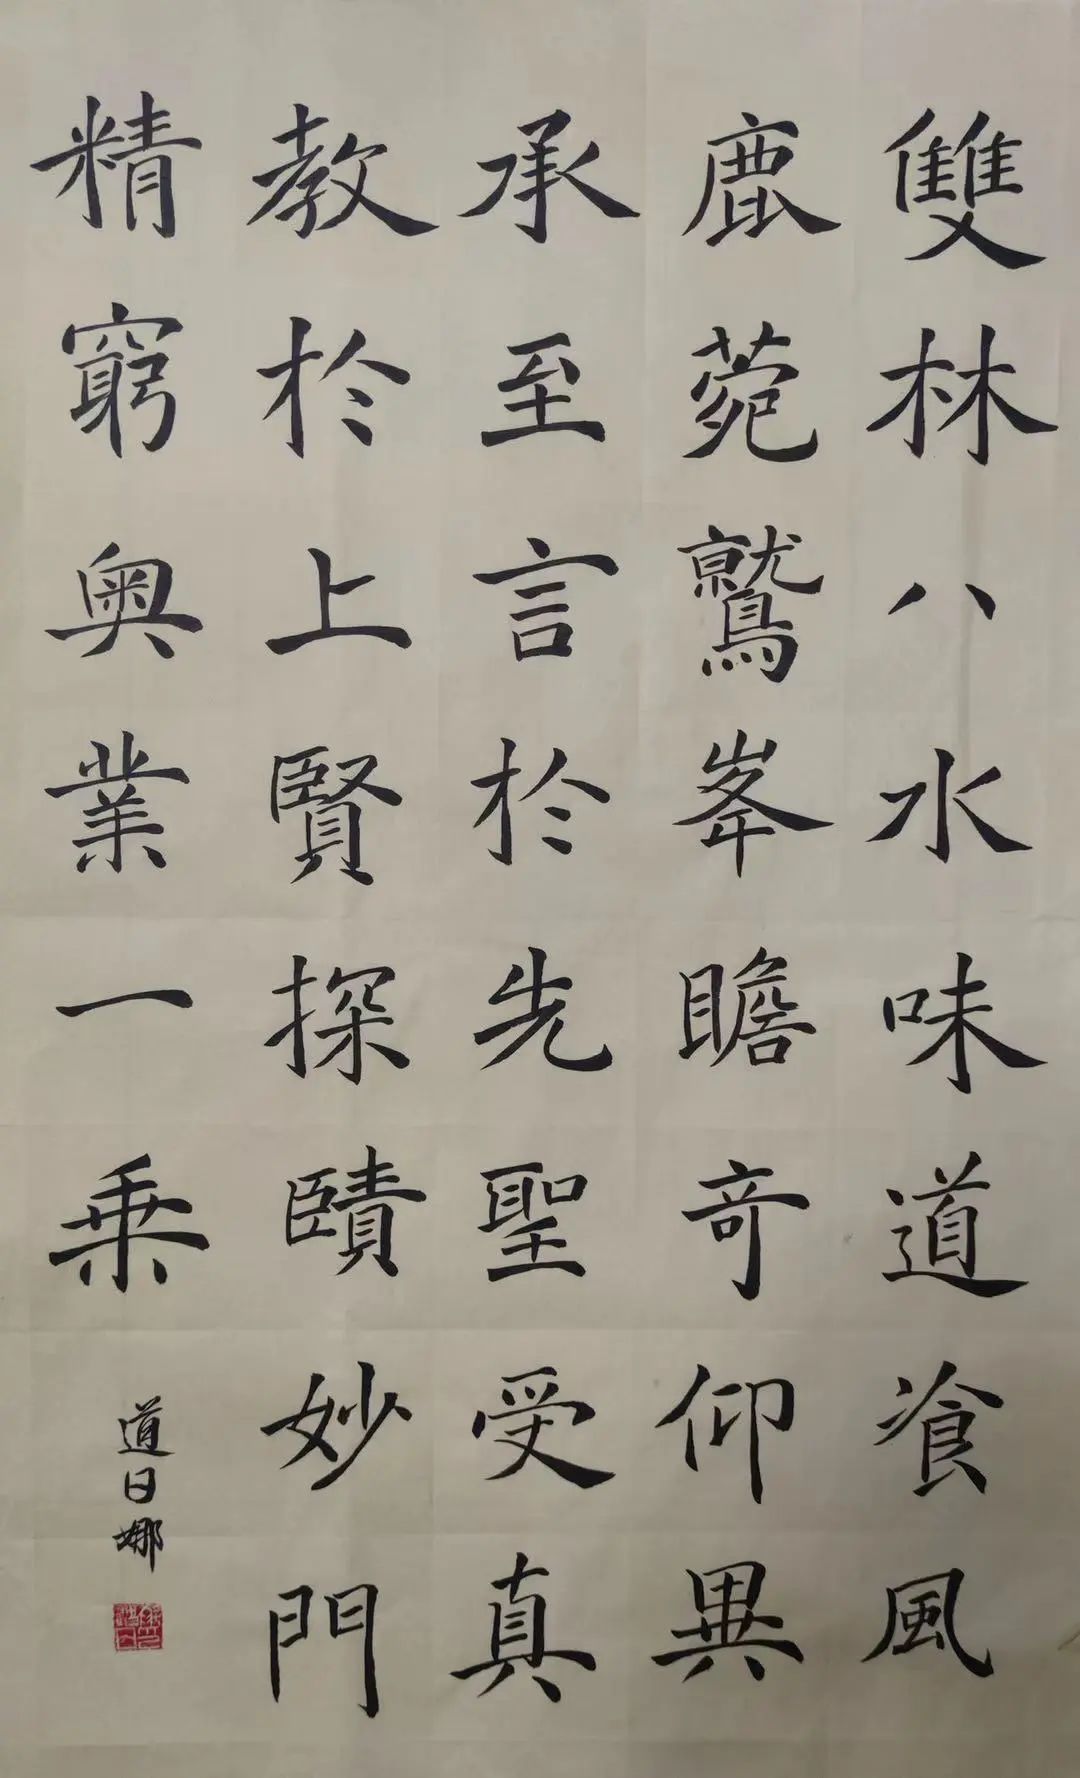 雙林八水味道飡風
鹿菀鷲峯瞻竒仰異
承至言於先聖受真
教於上賢探賾妙門
精窮奥業一乗
道日娜